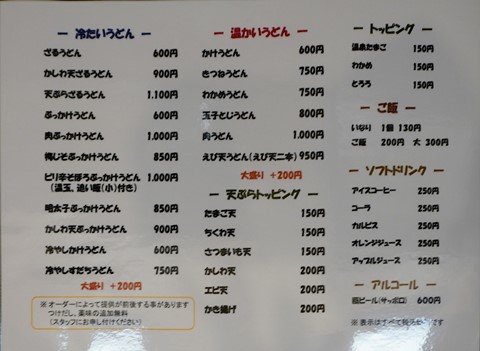 ― 冷たいうどん ―
ざるうどん 600円
かしわ天ざるうどん 900円
天ぷらざるうどん 1.100円
ぶっかけうどん 600円
肉ぶっかけうどん 1.000円
梅じそぶっかけうどん 850円
ピリ辛そぼろぶっかけうどん 1.000円
(温玉、追い飯(小)付き)
明太子ぶっかけうどん 850円
かしわ天ぶっかけうどん 900円
冷やしかけうどん 600円
冷やしすだちうどん 750円
大盛り +200円
※オーダーによって提供が前後する事があります
つけだし、薬味の追加無料
(スタッフにお申し付けください)
― 温かいうどん ―
かけうどん 600円
きつねうどん 750円
わかめうどん 750円
玉子とじうどん 800円
肉うどん 1.000円
えび天うどん(えび天二本) 950円
大盛り +200円
― 天ぷらトッピング ―
たまご天 150円
ちくわ天 150円
さつまいも天 150円
かしわ天 200円
エビ天 200円
かき揚げ 200円
― トッピング ―
温泉たまご 150円
わかめ 150円
とろろ 150円
― ご飯 ―
いなり 1個 130円
ご飯 200円 大 300円
― ソフトドリンク ―
アイスコーヒー 250円
コーラ 250円
カルピス 250円
オレンジジュース 250円
アップルジュース 250円
― アルコール ―
瓶ビール(サッポロ) 600円
※ 表示はすべて税込です